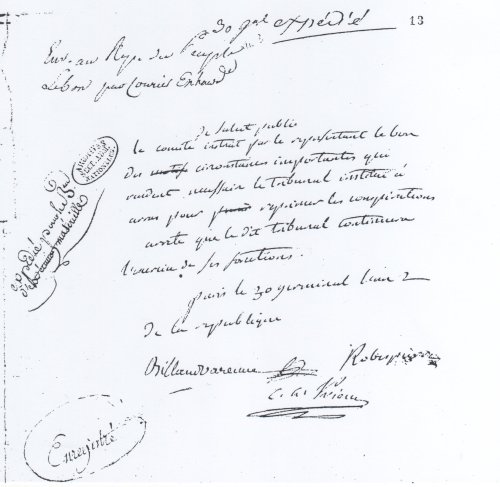 30 gal expédié
13
Env. au Rep. du Peuple
Lebon par Courier Extraord
de salut public
le comité instruit par le représentant le bon
des motifs circonstances importantes qui
rendent nécessaire le tribunal institué à
arras pour réprimer les conspirations
arrête que le dit tribunal continuera
l'exercice de ses fonctions.
paris le 30 germinal l'an 2
de la république
Billaud varenne
Robespierre
C. A. Prieur
ARCHIVES
NATIONALES
expédié pour le
Enregistré